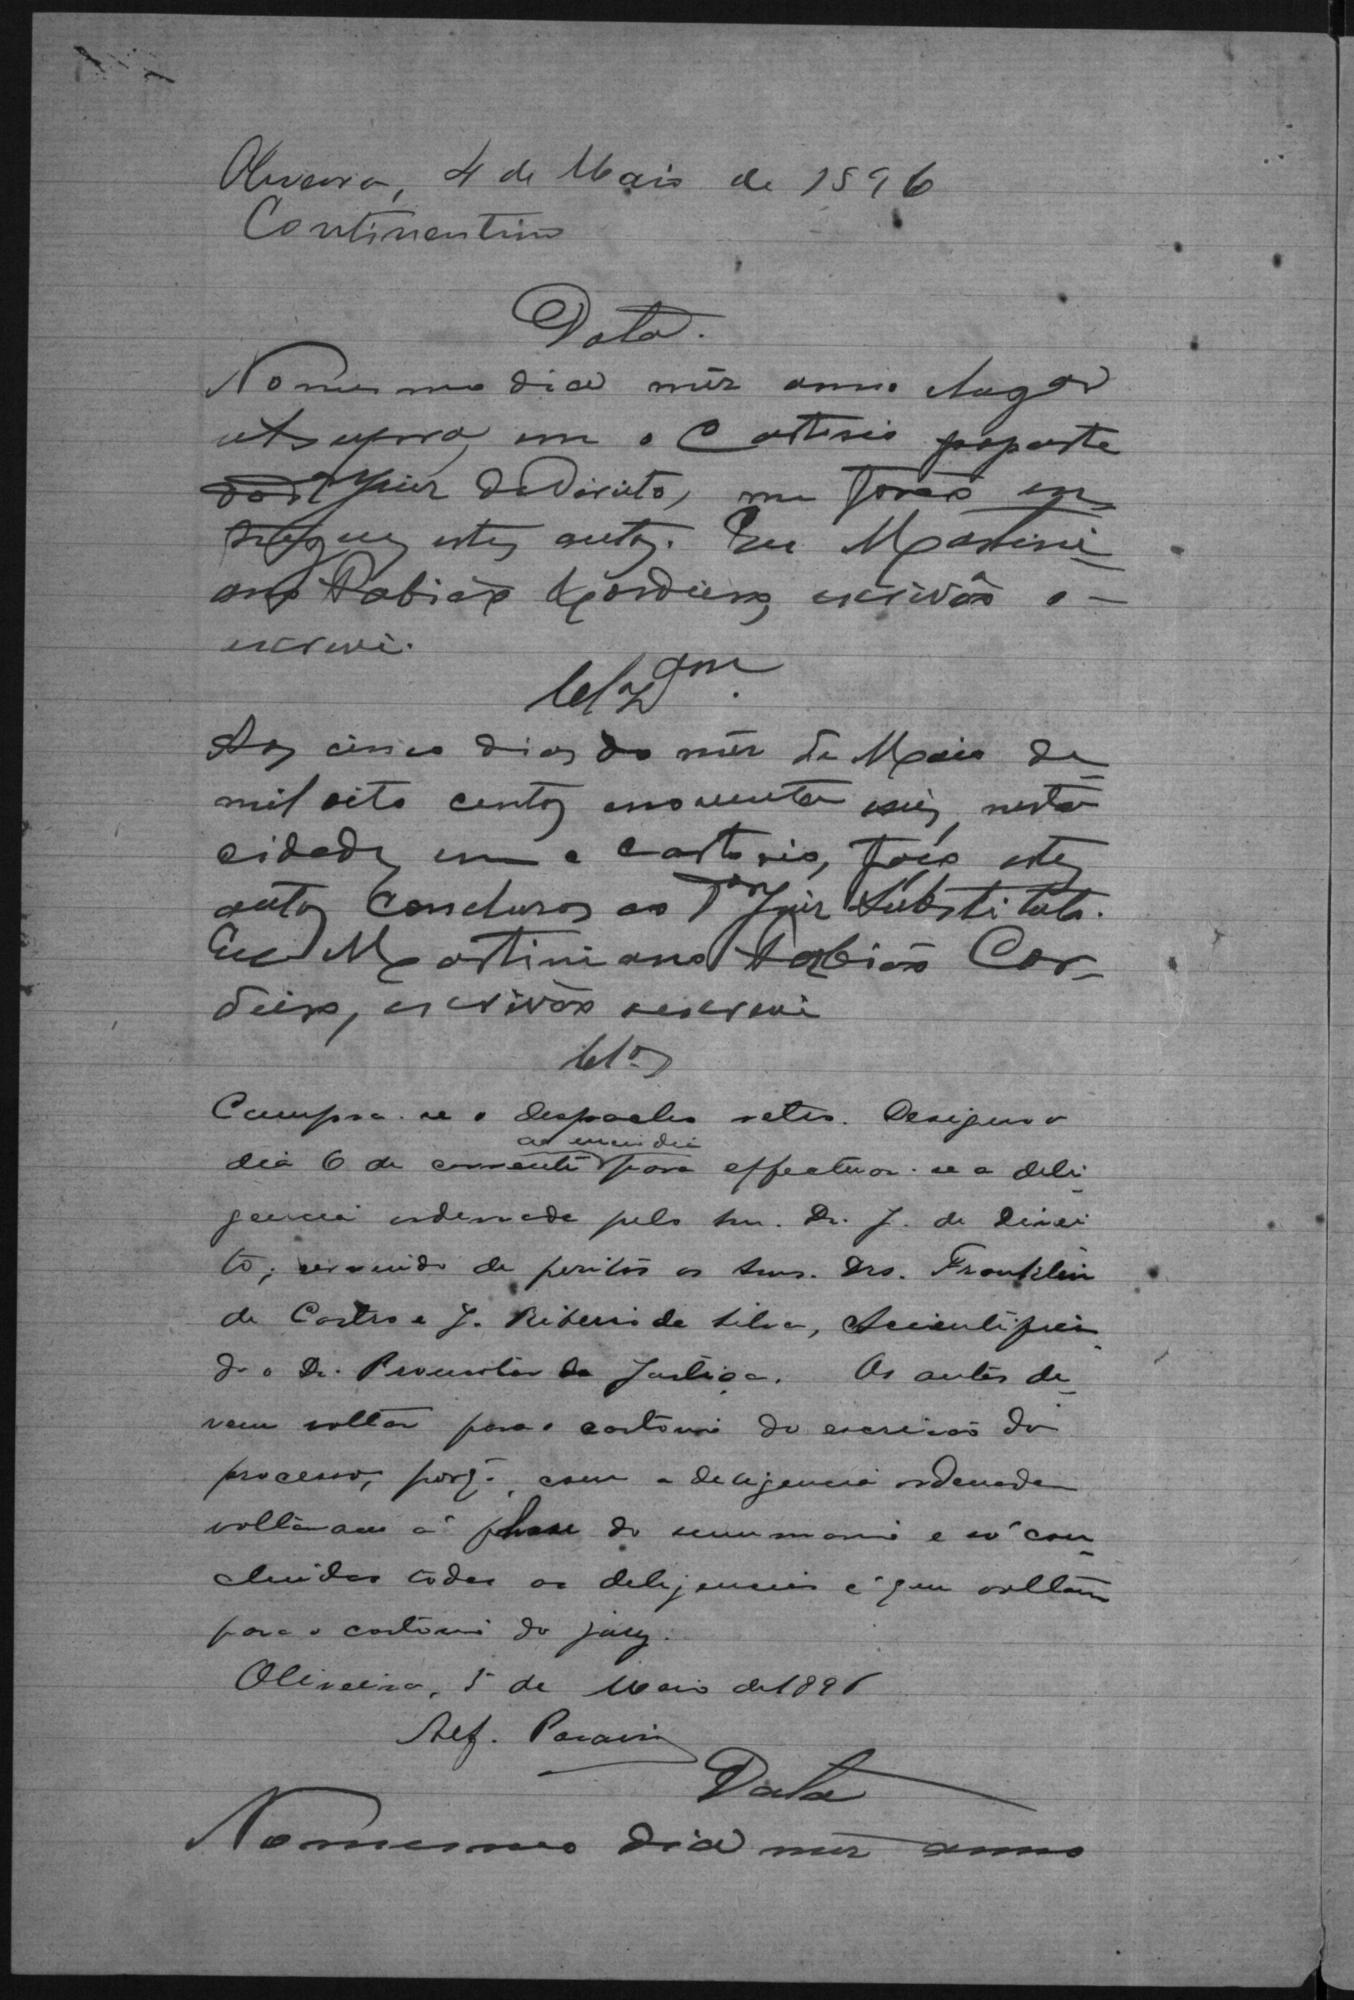 Oliveira, 4 de Maio de 1896
Continentino
Data.
No mesmo dia mez anno e lugar
ut supra, em o Cartorio por parte
do Dr Juiz de Direito, me forão en
tregues estes autos. Eu Martini
ano Tobias Cordeiro, escrivão o
escrevi.
Clzam.
Aos cinco dias do mez de Maio de
mil oito centos e noventa e seis, nesta
cidade, em o Cartorio, faço estes
autos conclusos ao Dor Juiz Substituto.
Eu Martiniano Tobias Cor
deiro, escrivão o escrevi
Clos
Cumpra-se o despacho retro. Designo o
dia 6 do corrente ao meio dia para effectuar-se a deli
gencia ordenada pelo Snr. Dr. J. de Direi
to; servindo de peritos os Snrs. Drs. Franklin
de Castro e J. Ribeiro da Silva, scientifican
do o Dr. Promotor da Justiça. Os autos de
vem voltar para o cartorio do escrivão do
processo, porq. com a deligencia ordenada
voltaram á phase do summario e só con
cluidas todas as deligencias é que voltam
para o cartorio do jury.
Oliveira, 5 de Maio de 1896
Alf.
Data
No mesmo dia mez anno